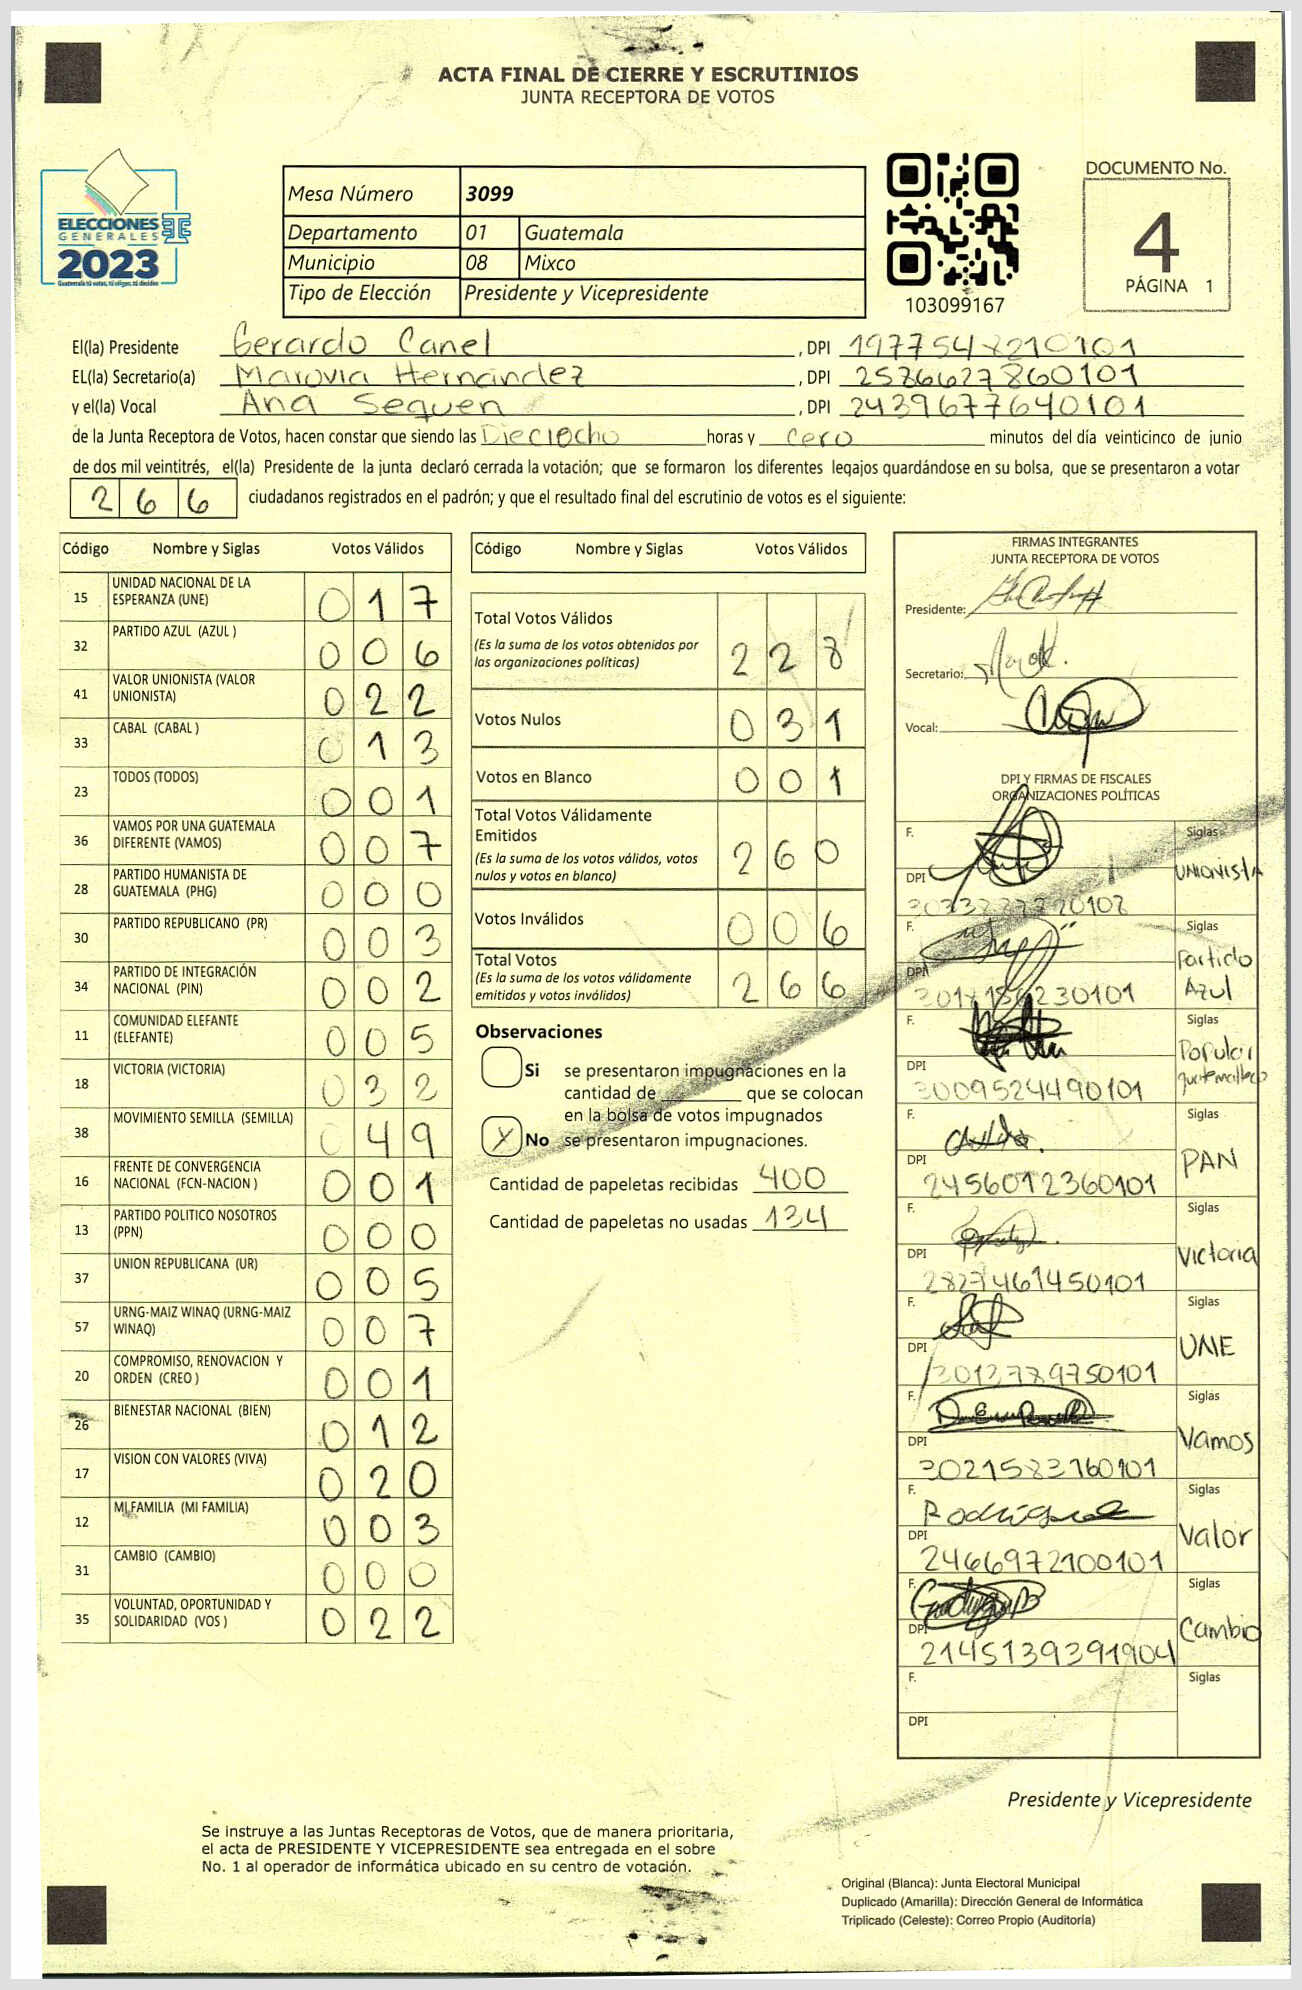 ACTA FINAL DE CIERRE Y ESCRUTINIOS
JUNTA RECEPTORA DE VOTOS
ELECCIONES
GENERALES
2023
Guatemala tú votas, tú eliges, tú decides
Mesa Número 3099
Departamento 01 Guatemala
Municipio 08 Mixco
Tipo de Elección Presidente y Vicepresidente
103099167
DOCUMENTO No.
4
PÁGINA 1
El(la) Presidente Gerardo Canel , DPI 1977548210101
EL(la) Secretario(a) Marovia Hernández , DPI 2576627860101
y el(la) Vocal Ana Sequen , DPI 2439677640101
de la Junta Receptora de Votos, hacen constar que siendo las Dieciocho horas y cero minutos del día veinticinco de junio
de dos mil veintitrés, el(la) Presidente de la junta declaró cerrada la votación; que se formaron los diferentes legajos guardándose en su bolsa, que se presentaron a votar
266 ciudadanos registrados en el padrón; y que el resultado final del escrutinio de votos es el siguiente:
Código Nombre y Siglas Votos Válidos
15 UNIDAD NACIONAL DE LA ESPERANZA (UNE) 017
32 PARTIDO AZUL (AZUL ) 006
41 VALOR UNIONISTA (VALOR UNIONISTA) 022
33 CABAL (CABAL ) 013
23 TODOS (TODOS) 001
36 VAMOS POR UNA GUATEMALA DIFERENTE (VAMOS) 007
28 PARTIDO HUMANISTA DE GUATEMALA (PHG) 000
30 PARTIDO REPUBLICANO (PR) 003
34 PARTIDO DE INTEGRACIÓN NACIONAL (PIN) 002
11 COMUNIDAD ELEFANTE (ELEFANTE) 005
18 VICTORIA (VICTORIA) 032
38 MOVIMIENTO SEMILLA (SEMILLA) 049
16 FRENTE DE CONVERGENCIA NACIONAL (FCN-NACION ) 001
13 PARTIDO POLITICO NOSOTROS (PPN) 000
37 UNION REPUBLICANA (UR) 005
57 URNG-MAIZ WINAQ (URNG-MAIZ WINAQ) 007
20 COMPROMISO, RENOVACION Y ORDEN (CREO ) 001
26 BIENESTAR NACIONAL (BIEN) 012
17 VISION CON VALORES (VIVA) 020
12 MI FAMILIA (MI FAMILIA) 003
31 CAMBIO (CAMBIO) 000
35 VOLUNTAD, OPORTUNIDAD Y SOLIDARIDAD (VOS ) 022
Código Nombre y Siglas Votos Válidos
Total Votos Válidos 228
(Es la suma de los votos obtenidos por
las organizaciones políticas)
Votos Nulos 031
Votos en Blanco 001
Total Votos Válidamente
Emitidos 260
(Es la suma de los votos válidos, votos
nulos y votos en blanco)
Votos Inválidos 006
Total Votos 266
(Es la suma de los votos válidamente
emitidos y votos inválidos)
Observaciones
Si se presentaron impugnaciones en la
cantidad de que se colocan
en la bolsa de votos impugnados
X No se presentaron impugnaciones.
Cantidad de papeletas recibidas 400
Cantidad de papeletas no usadas 134
FIRMAS INTEGRANTES
JUNTA RECEPTORA DE VOTOS
Presidente:
Secretario:
Vocal:
DPI Y FIRMAS DE FISCALES
ORGANIZACIONES POLÍTICAS
F. Siglas
DPI Unionista
F. Siglas
DPI Partido Azul
F. Siglas
DPI 3009524490101 Popular guatemalteco
F. Siglas
DPI 2456012360101 PAN
F. Siglas
DPI 2827461450101 Victoria
F. Siglas
DPI 3013779750101 UNE
F. Siglas
DPI 3021583760101 Vamos
F. Rodríguez Siglas
DPI 2466972100101 Valor
F. Siglas
DPI 2145139391904 Cambio
F. Siglas
DPI
Presidente y Vicepresidente
Se instruye a las Juntas Receptoras de Votos, que de manera prioritaria,
el acta de PRESIDENTE Y VICEPRESIDENTE sea entregada en el sobre
No. 1 al operador de informática ubicado en su centro de votación.
Original (Blanca): Junta Electoral Municipal
Duplicado (Amarilla): Dirección General de Informática
Triplicado (Celeste): Correo Propio (Auditoría)